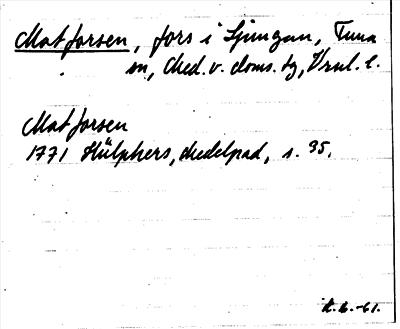 Matforsen, fors i Ljungan, Tuna
sn, Med. v. doms. tg, Vrnl. l.
Matforsen
1771 Hülphers, Medelpad, s. 35.
K.G.-61.